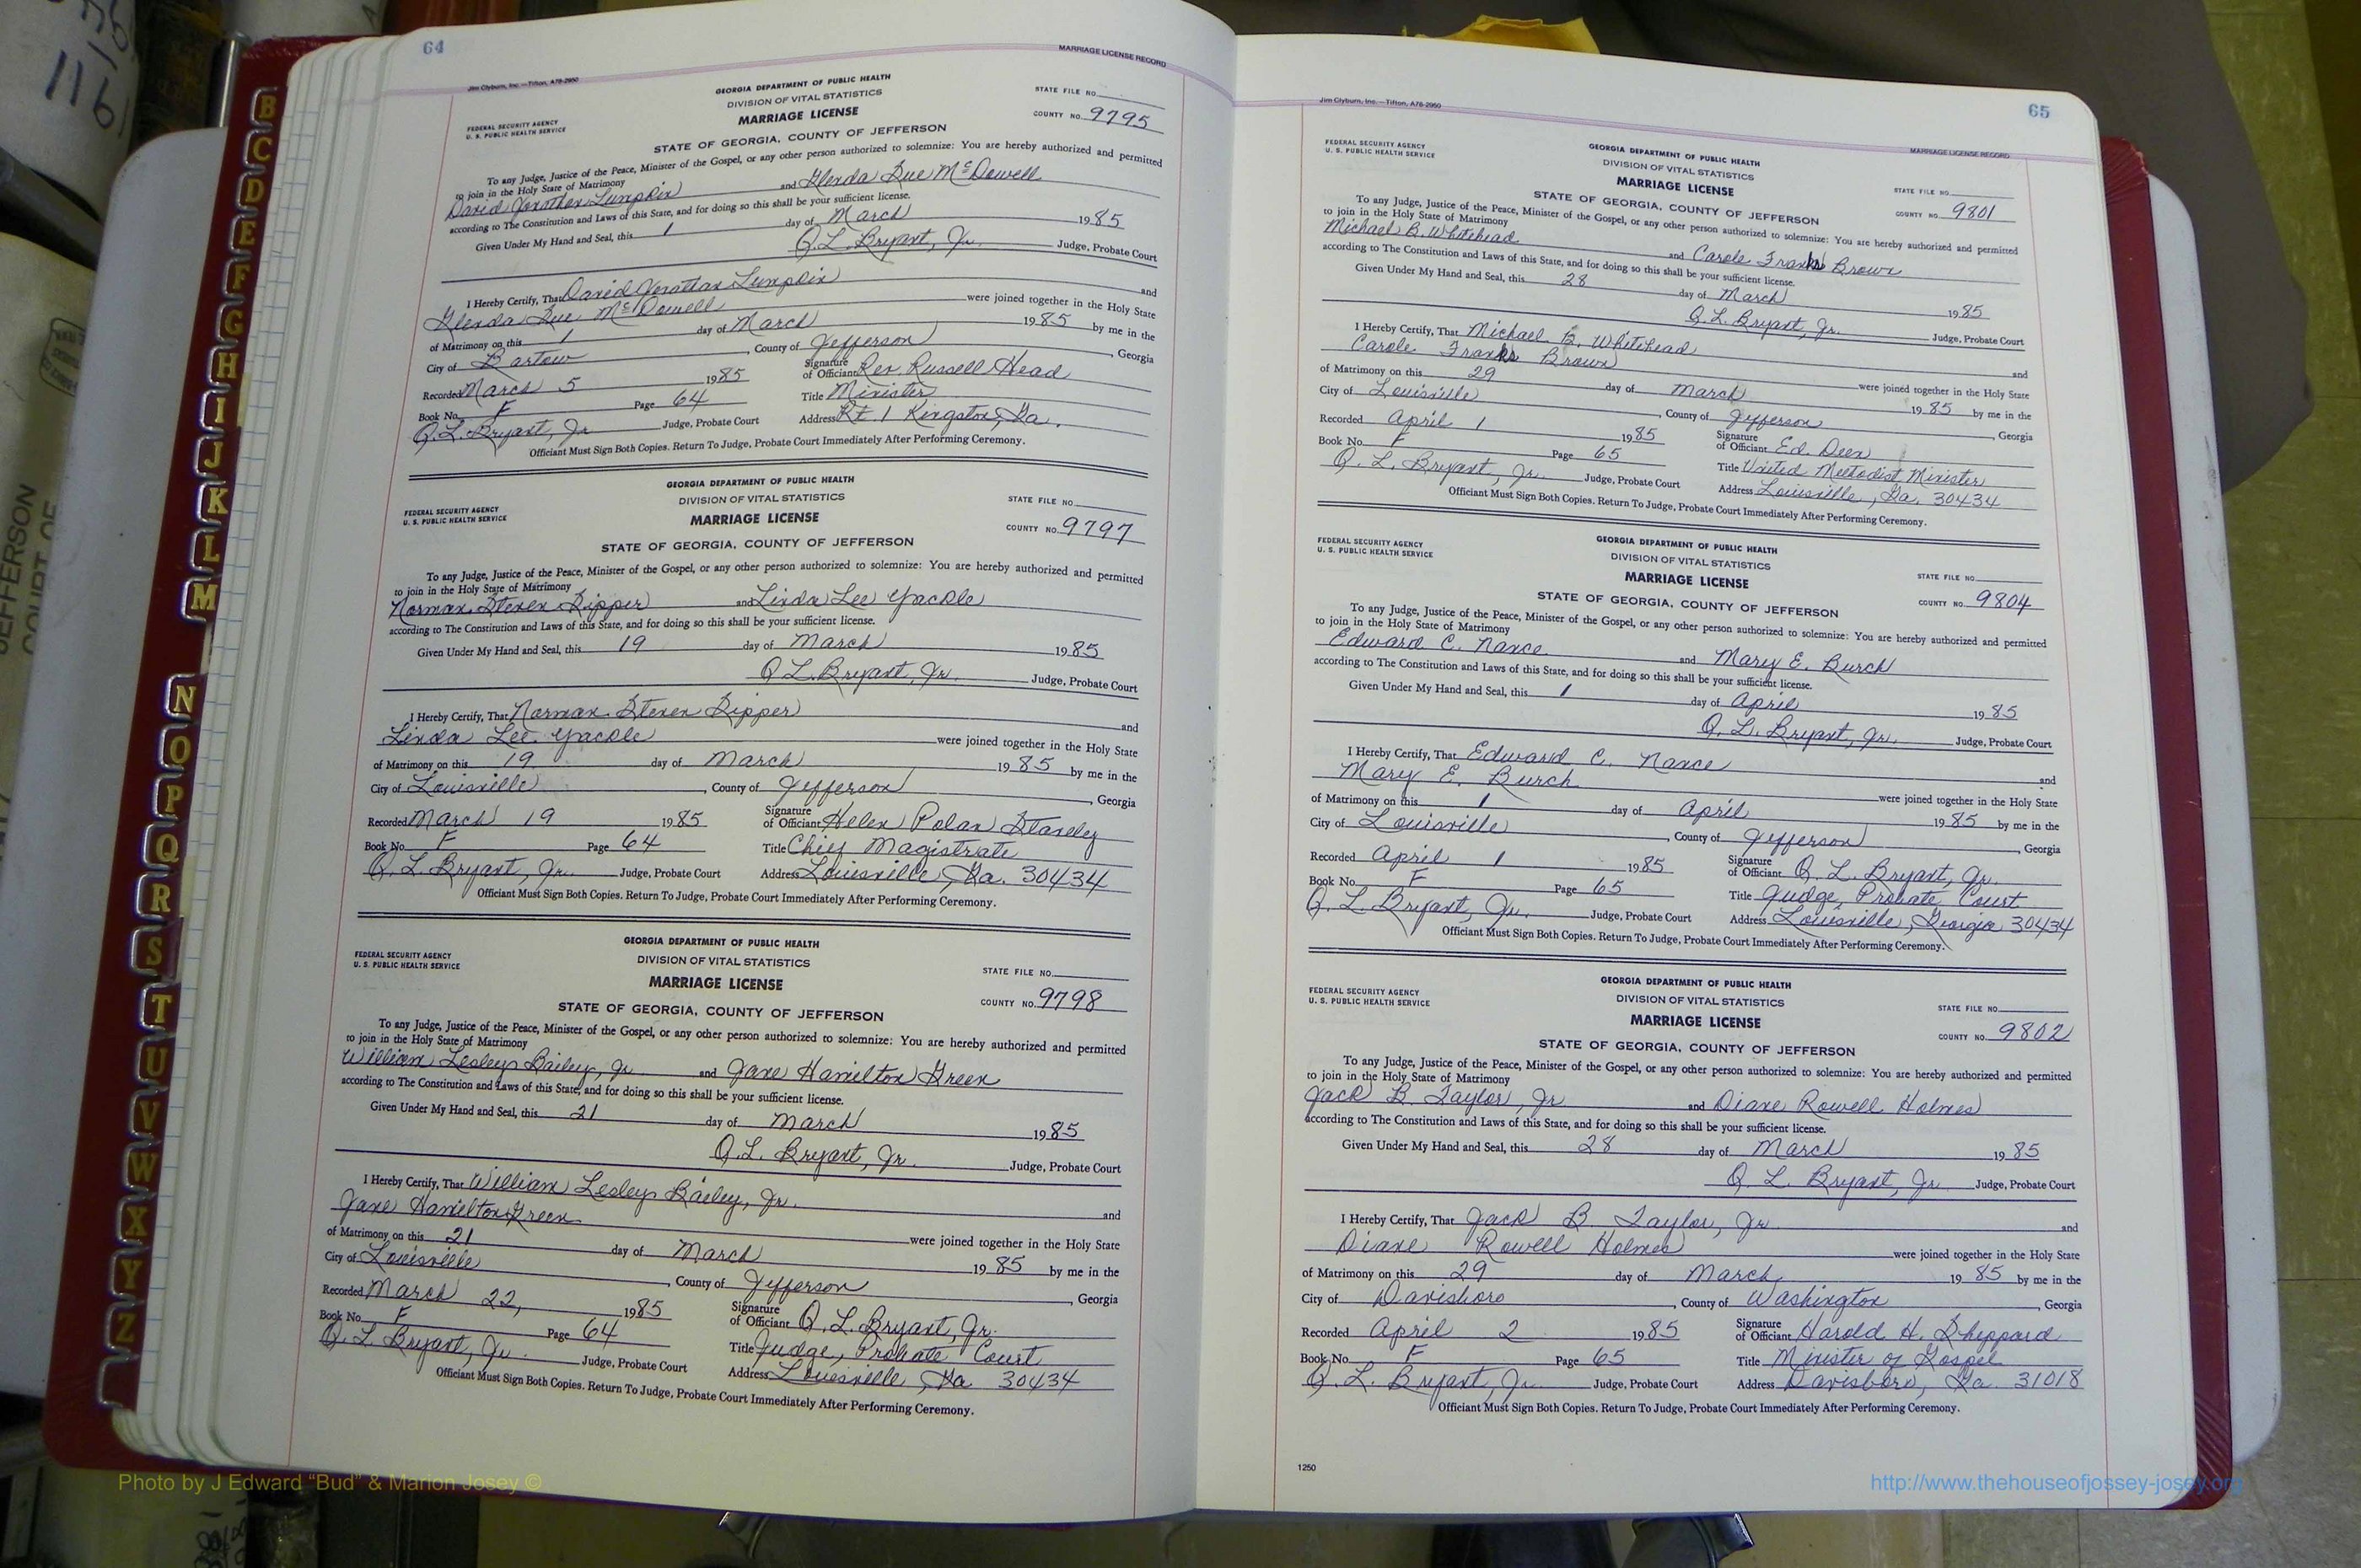 64
MARRIAGE LICENSE RECORD
Jim Clyburn, Inc.—Tifton, A78-2950
GEORGIA DEPARTMENT OF PUBLIC HEALTH
DIVISION OF VITAL STATISTICS
MARRIAGE LICENSE
STATE OF GEORGIA, COUNTY OF JEFFERSON
FEDERAL SECURITY AGENCY
U. S. PUBLIC HEALTH SERVICE
STATE FILE NO.
COUNTY NO. 9795
To any Judge, Justice of the Peace, Minister of the Gospel, or any other person authorized to solemnize: You are hereby authorized and permitted
to join in the Holy State of Matrimony
David Jonathan Lumpkin and Glenda Sue McDowell
according to The Constitution and Laws of this State, and for doing so this shall be your sufficient license.
Given Under My Hand and Seal, this 1 day of March 1985
Q.L. Bryant, Jr. Judge, Probate Court
I Hereby Certify, That David Jonathan Lumpkin and
Glenda Sue McDowell were joined together in the Holy State
of Matrimony on this 1 day of March 1985 by me in the
City of Bartow, County of Jefferson, Georgia
Recorded March 5 1985 Signature of Officiant Rev. Russell Head
Book No. F Page 64 Title Minister
Q.L. Bryant, Jr Judge, Probate Court Address Rt. 1 Kingston, Ga.
Officiant Must Sign Both Copies. Return To Judge, Probate Court Immediately After Performing Ceremony.
GEORGIA DEPARTMENT OF PUBLIC HEALTH
DIVISION OF VITAL STATISTICS
MARRIAGE LICENSE
STATE OF GEORGIA, COUNTY OF JEFFERSON
FEDERAL SECURITY AGENCY
U. S. PUBLIC HEALTH SERVICE
STATE FILE NO.
COUNTY NO. 9797
To any Judge, Justice of the Peace, Minister of the Gospel, or any other person authorized to solemnize: You are hereby authorized and permitted
to join in the Holy State of Matrimony
Norman Steven Sipper and Linda Lee Yackle
according to The Constitution and Laws of this State, and for doing so this shall be your sufficient license.
Given Under My Hand and Seal, this 19 day of March 1985
Q L. Bryant, Jr. Judge, Probate Court
I Hereby Certify, That Norman Steven Sipper and
Linda Lee Yackle were joined together in the Holy State
of Matrimony on this 19 day of March 1985 by me in the
City of Louisville, County of Jefferson, Georgia
Recorded March 19 1985 Signature of Officiant Helen Polan Standey
Book No. F Page 64 Title Chief Magistrate
Q. L. Bryant, Jr. Judge, Probate Court Address Louisville, Ga. 30434
Officiant Must Sign Both Copies. Return To Judge, Probate Court Immediately After Performing Ceremony.
GEORGIA DEPARTMENT OF PUBLIC HEALTH
DIVISION OF VITAL STATISTICS
MARRIAGE LICENSE
STATE OF GEORGIA, COUNTY OF JEFFERSON
FEDERAL SECURITY AGENCY
U. S. PUBLIC HEALTH SERVICE
STATE FILE NO.
COUNTY NO. 9798
To any Judge, Justice of the Peace, Minister of the Gospel, or any other person authorized to solemnize: You are hereby authorized and permitted
to join in the Holy State of Matrimony
William Lesley Bailey, Jr and Jane Hamilton Green
according to The Constitution and Laws of this State, and for doing so this shall be your sufficient license.
Given Under My Hand and Seal, this 21 day of March 1985
Q.L. Bryant, Jr. Judge, Probate Court
I Hereby Certify, That William Lesley Bailey, Jr. and
Jane Hamilton Green were joined together in the Holy State
of Matrimony on this 21 day of March 1985 by me in the
City of Louisville, County of Jefferson, Georgia
Recorded March 22, 1985 Signature of Officiant Q. L. Bryant, Jr.
Book No. F Page 64 Title Judge, Probate Court
Q. L. Bryant, Jr. Judge, Probate Court Address Louisville, Ga. 30434
Officiant Must Sign Both Copies. Return To Judge, Probate Court Immediately After Performing Ceremony.
65
Jim Clyburn, Inc.—Tifton, A78-2950
MARRIAGE LICENSE RECORD
GEORGIA DEPARTMENT OF PUBLIC HEALTH
DIVISION OF VITAL STATISTICS
MARRIAGE LICENSE
STATE OF GEORGIA, COUNTY OF JEFFERSON
FEDERAL SECURITY AGENCY
U. S. PUBLIC HEALTH SERVICE
STATE FILE NO.
COUNTY NO. 9801
To any Judge, Justice of the Peace, Minister of the Gospel, or any other person authorized to solemnize: You are hereby authorized and permitted
to join in the Holy State of Matrimony
Michael B. Whitehead and Carole Franks Brown
according to The Constitution and Laws of this State, and for doing so this shall be your sufficient license.
Given Under My Hand and Seal, this 28 day of March 1985
Q.L. Bryant, Jr. Judge, Probate Court
I Hereby Certify, That Michael B. Whitehead and
Carole Franks Brown were joined together in the Holy State
of Matrimony on this 29 day of March 1985 by me in the
City of Louisville, County of Jefferson, Georgia
Recorded April 1 1985 Signature of Officiant Ed. Deen
Book No. F Page 65 Title United Methodist Minister
Q. L. Bryant, Jr. Judge, Probate Court Address Louisville, Ga. 30434
Officiant Must Sign Both Copies. Return To Judge, Probate Court Immediately After Performing Ceremony.
GEORGIA DEPARTMENT OF PUBLIC HEALTH
DIVISION OF VITAL STATISTICS
MARRIAGE LICENSE
STATE OF GEORGIA, COUNTY OF JEFFERSON
FEDERAL SECURITY AGENCY
U. S. PUBLIC HEALTH SERVICE
STATE FILE NO.
COUNTY NO. 9804
To any Judge, Justice of the Peace, Minister of the Gospel, or any other person authorized to solemnize: You are hereby authorized and permitted
to join in the Holy State of Matrimony
Edward C. Nance and Mary E. Burch
according to The Constitution and Laws of this State, and for doing so this shall be your sufficient license.
Given Under My Hand and Seal, this 1 day of April 1985
Q. L. Bryant, Jr. Judge, Probate Court
I Hereby Certify, That Edward C. Nance and
Mary E. Burch were joined together in the Holy State
of Matrimony on this 1 day of April 1985 by me in the
City of Louisville, County of Jefferson, Georgia
Recorded April 1 1985 Signature of Officiant Q. L. Bryant, Jr.
Book No. F Page 65 Title Judge, Probate Court
Q. L. Bryant, Jr. Judge, Probate Court Address Louisville, Georgia 30434
Officiant Must Sign Both Copies. Return To Judge, Probate Court Immediately After Performing Ceremony.
GEORGIA DEPARTMENT OF PUBLIC HEALTH
DIVISION OF VITAL STATISTICS
MARRIAGE LICENSE
STATE OF GEORGIA, COUNTY OF JEFFERSON
FEDERAL SECURITY AGENCY
U. S. PUBLIC HEALTH SERVICE
STATE FILE NO.
COUNTY NO. 9802
To any Judge, Justice of the Peace, Minister of the Gospel, or any other person authorized to solemnize: You are hereby authorized and permitted
to join in the Holy State of Matrimony
Jack B. Taylor, Jr and Diane Rowell Holmes
according to The Constitution and Laws of this State, and for doing so this shall be your sufficient license.
Given Under My Hand and Seal, this 28 day of March 1985
Q. L. Bryant, Jr Judge, Probate Court
I Hereby Certify, That Jack B Taylor, Jr and
Diane Rowell Holmes were joined together in the Holy State
of Matrimony on this 29 day of March 1985 by me in the
City of Davisboro, County of Washington, Georgia
Recorded April 2 1985 Signature of Officiant Harold H. Sheppard
Book No. F Page 65 Title Minister of Gospel
Q. L. Bryant, Jr. Judge, Probate Court Address Davisboro, Ga 31018
Officiant Must Sign Both Copies. Return To Judge, Probate Court Immediately After Performing Ceremony.
1250
B
C
D
E
F
G
H
I
J
K
L
M
N
O
P
Q
R
S
T
U
V
W
X
Y
Z
JEFFERSON
COURT OF
Photo by J Edward “Bud” & Marion Josey ©
http://www.thehouseofjossey-josey.org